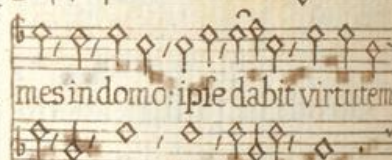 mes in domo: ipſe dabit virtutem